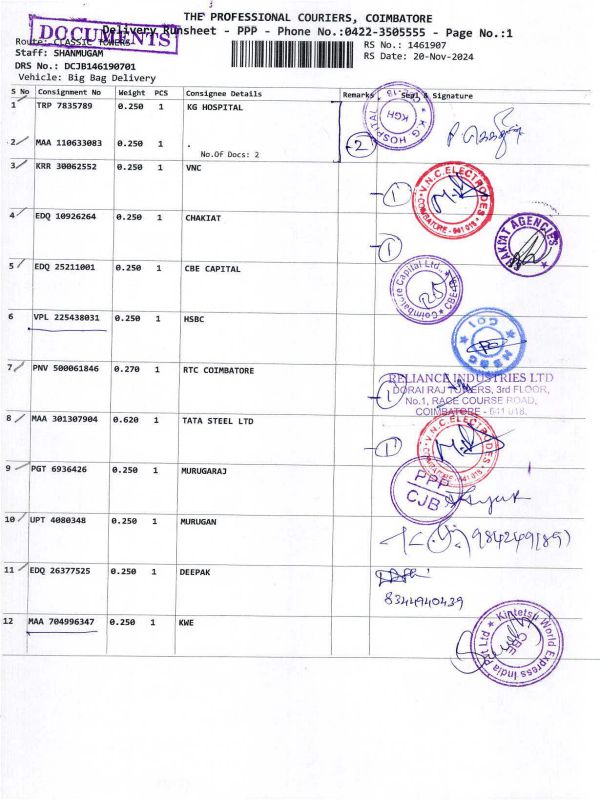 THE PROFESSIONAL COURIERS, COIMBATORE
DOCUMENTS
Delivery Runsheet - PPP - Phone No.:0422-3505555 - Page No.:1
Route: CLASSIC TOWERS
RS No.: 1461907
Staff: SHANMUGAM
RS Date: 20-Nov-2024
DRS No.: DCJB146190701
Vehicle: Big Bag Delivery
S No Consignment No Weight PCS Consignee Details Remarks Seal & Signature
1 TRP 7835789 0.250 1 KG HOSPITAL
KG HOSPITAL KGH
2 MAA 110633083 0.250 1 .
No.Of Docs: 2
2
3 KRR 30062552 0.250 1 VNC
1
V.N.C. ELECTRODES COIMBATORE - 641 018.
4 EDQ 10926264 0.250 1 CHAKIAT
1
CHAKIAT AGENCIES
5 EDQ 25211001 0.250 1 CBE CAPITAL
Coimbatore Capital Ltd., CBE
6 VPL 225438031 0.250 1 HSBC
HSBC
7 PNV 500061846 0.270 1 RTC COIMBATORE
1
RELIANCE INDUSTRIES LTD
DORAI RAJ TOWERS, 3rd FLOOR,
No.1, RACE COURSE ROAD,
COIMBATORE - 641 018.
8 MAA 301307904 0.620 1 TATA STEEL LTD
1
V.N.C. ELECTRODES COIMBATORE - 641 018.
9 PGT 6936426 0.250 1 MURUGARAJ
PPP
CJB
10 UPT 4080348 0.250 1 MURUGAN
11 EDQ 26377525 0.250 1 DEEPAK
8344940439
12 MAA 704996347 0.250 1 KWE
Kintetsu World Express India Pvt Ltd CBE